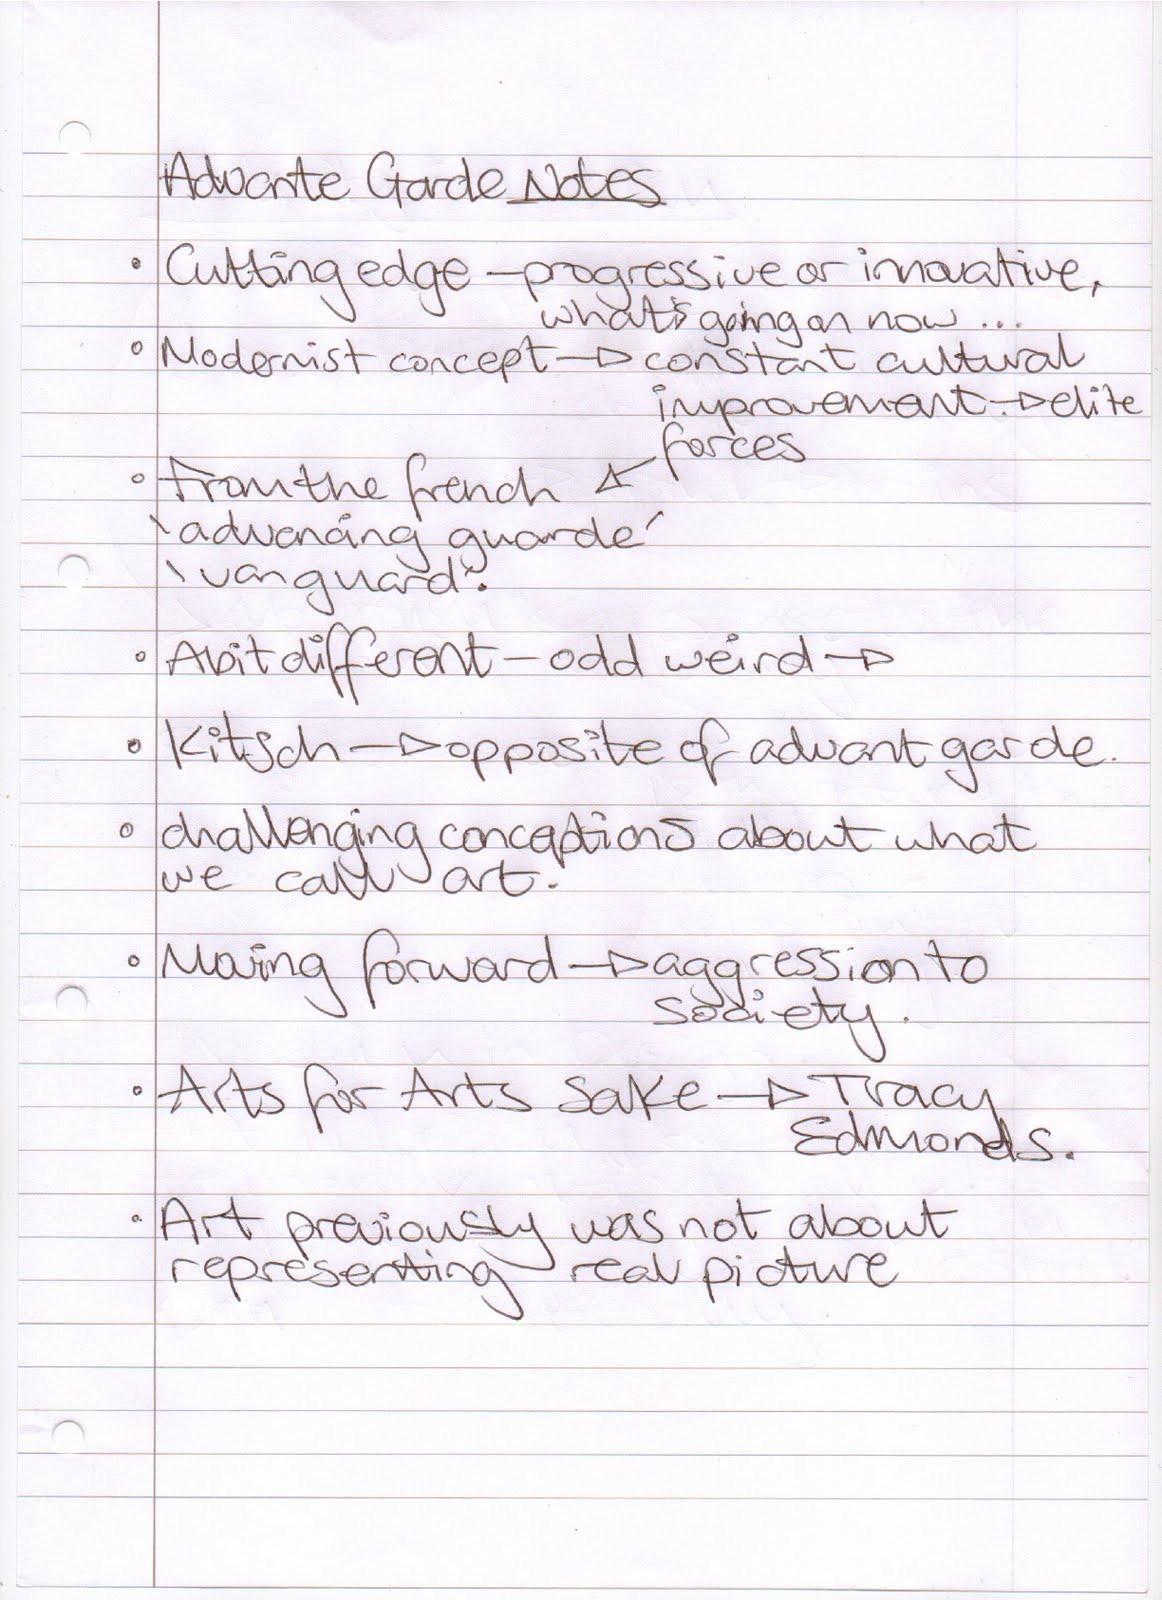 Advante Garde Notes
• Cutting edge – progressive or innovative,
what's going on now ...
• Modernist concept → constant cultural
improvement. → elite
forces
• From the french ↙
'advancing guarde'
'vanguard'.
• A bit different – odd weird →
• Kitsch → opposite of advant garde.
• challenging conceptions about what
we call art.
• Moving forward → aggression to
society.
• Arts for Arts Sake → Tracy
Edmonds.
• Art previously was not about
representing real picture